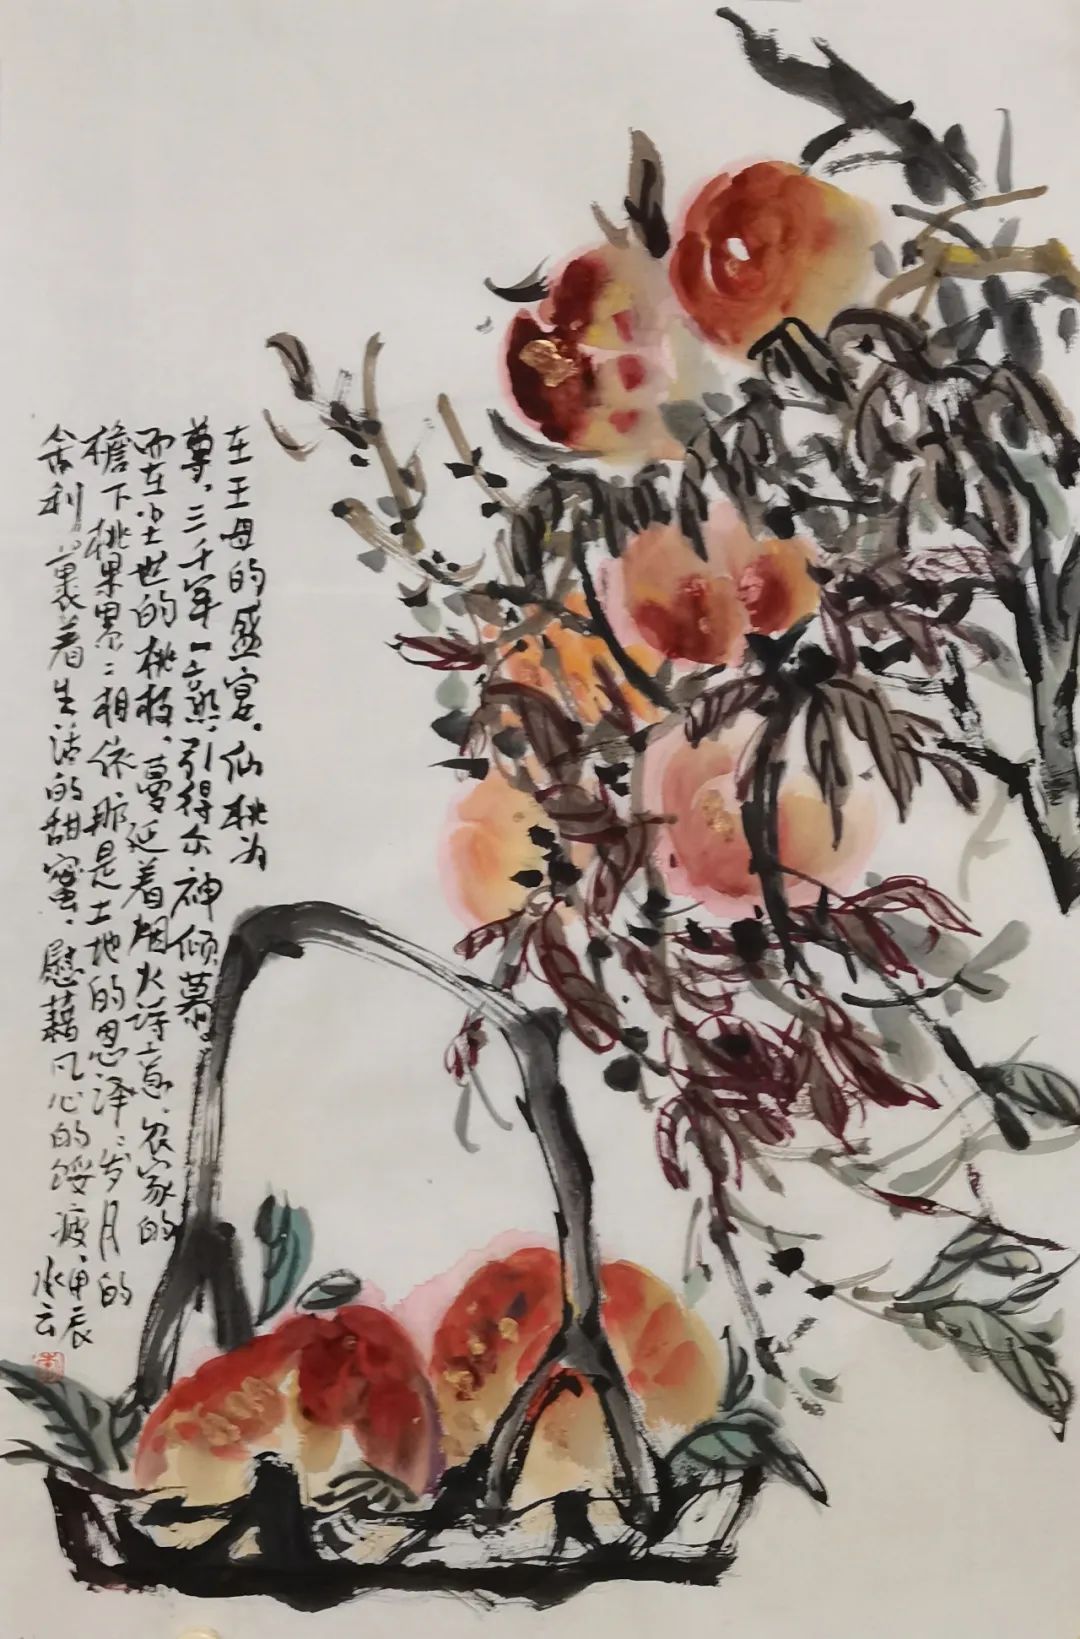 在王母的盛宴、仙桃为
尊、三千年一熟、引得众神倾慕
而在尘世的桃枝、蔓延着烟火诗意、农家的
檐下桃果累二相依、那是土地的恩泽、岁月的
舍利、裹着生活的甜蜜、慰藉凡心的馁疲、甲辰
水云